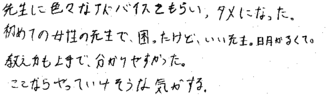 先生に色々なアドバイスをもらい，タメになった。
初めての女性の先生で，困ったけど，いい先生。目月がるくて。
教え方も上手で，分かりやすかった。
ここならやっていけそうな気がする。